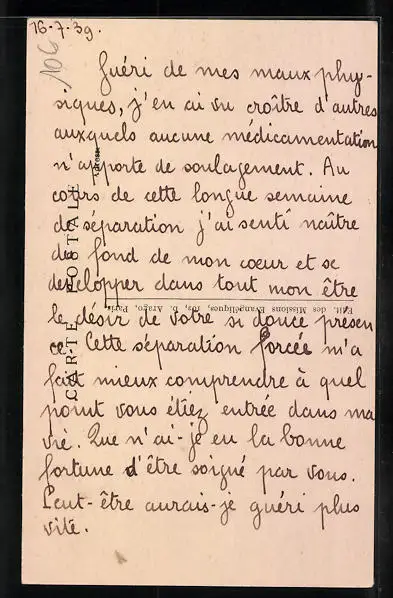 16-7-39.
106
Guéri de mes maux phy-
siques, j'en ai vu croître d'autres
auxquels aucune médicamentation
n'apporte de soulagement. Au
cours de cette longue semaine
de séparation j'ai senti naître
du fond de mon cœur et se
développer dans tout mon être
le désir de votre si douce présen
ce. Cette séparation forcée m'a
fait mieux comprendre à quel
point vous étiez entrée dans ma
vie. Que n'ai-je eu la bonne
fortune d'être soigné par vous.
Peut-être aurais-je guéri plus
vite.
CARTE POSTALE
Adresse
Edit. des Missions Evangéliques, 102, B. Arago, Paris